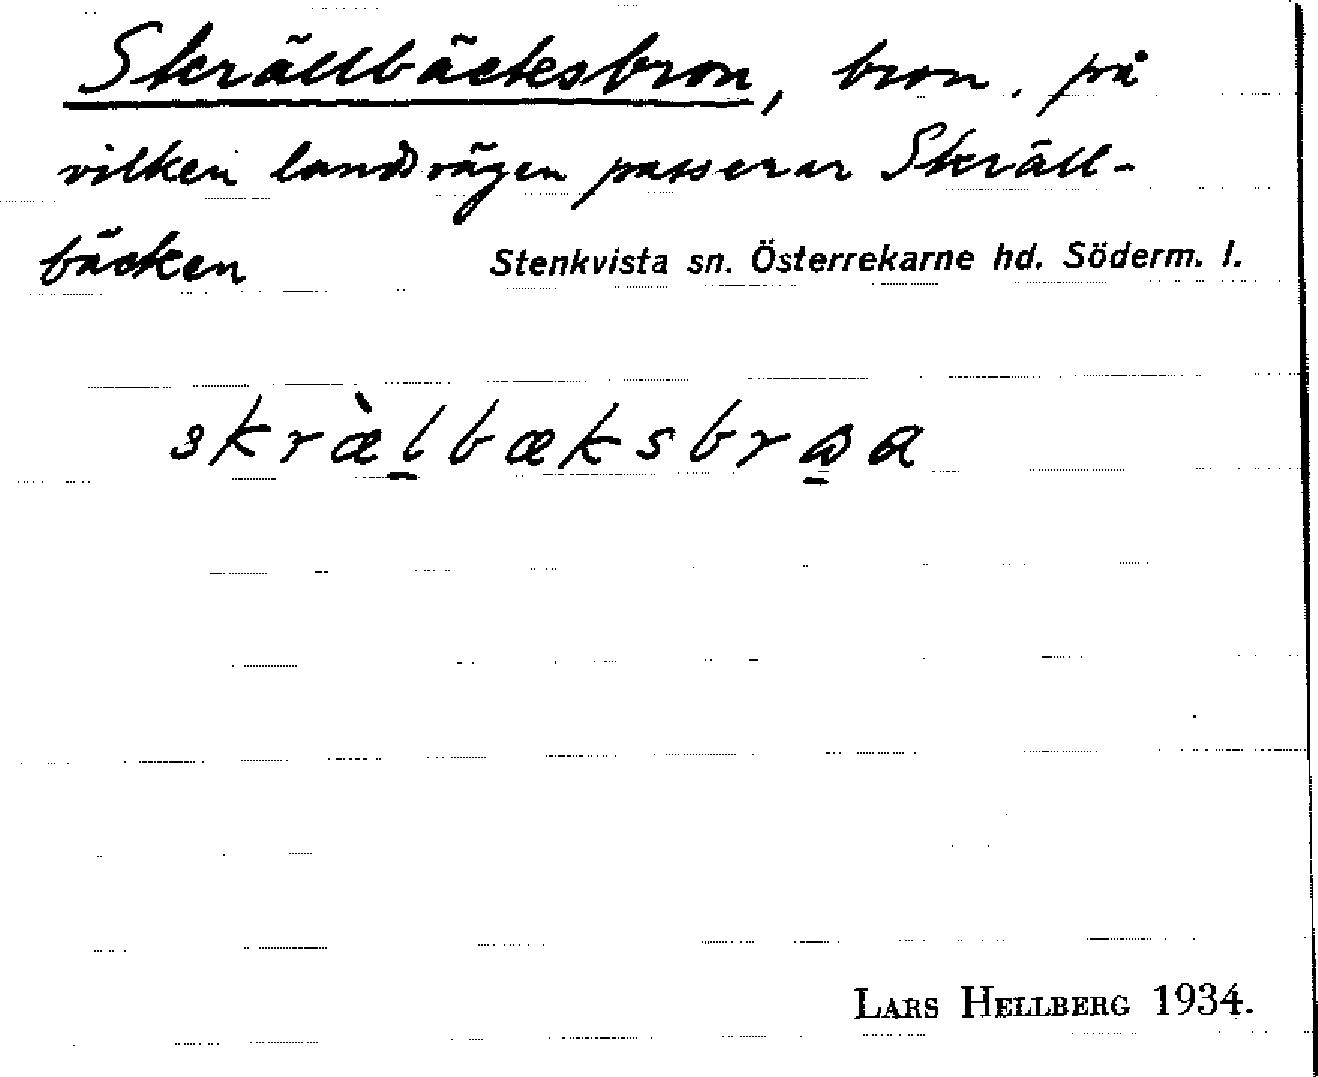 Skrällbäcksbron, bron, på
vilken landsvägen passerar Skräll-
bäcken Stenkvista sn. Österrekarne hd. Söderm. l.
skræ̀l̠bæksbrω̠a
LARS HELLBERG 1934.